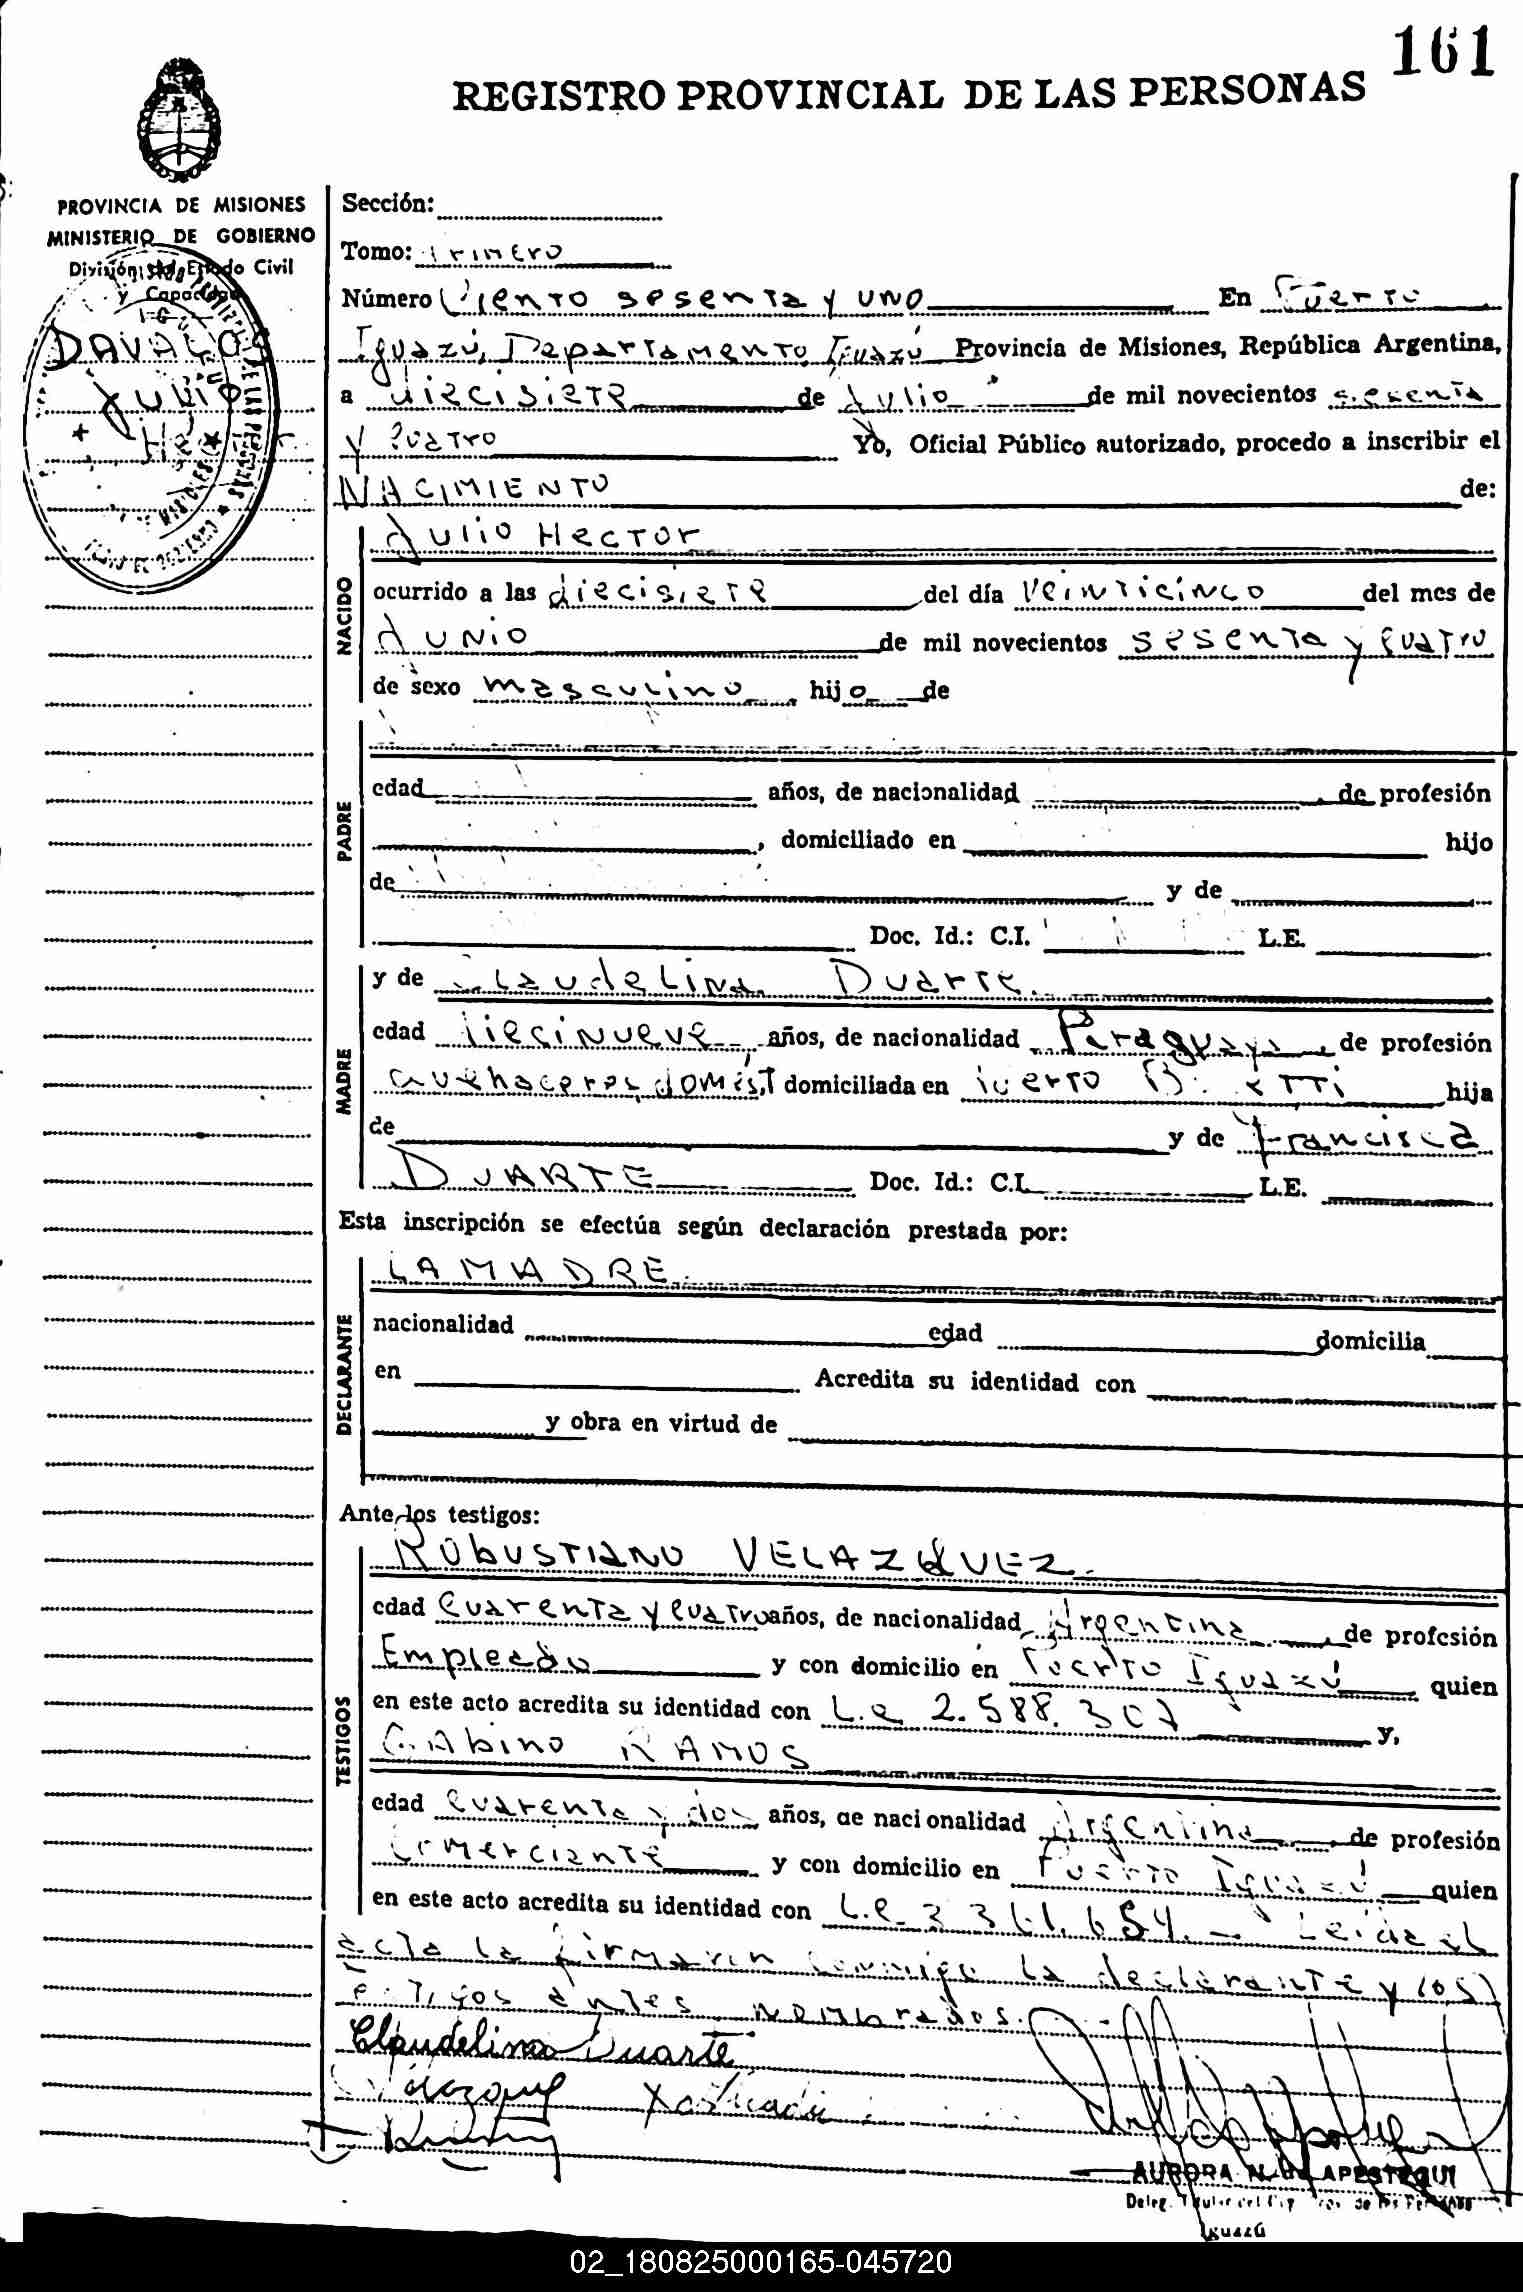 161
REGISTRO PROVINCIAL DE LAS PERSONAS
PROVINCIA DE MISIONES
MINISTERIO DE GOBIERNO
División del Estado Civil
y Capacidad
DAVALOS
Julio
Hector
Sección:
Tomo: Primero
Número Ciento sesenta y uno En Puerto
Iguazú, Departamento Iguazú Provincia de Misiones, República Argentina,
a diecisiete de Julio de mil novecientos sesenta
y cuatro Yo, Oficial Público autorizado, procedo a inscribir el
NACIMIENTO de:
NACIDO
Julio Hector
ocurrido a las diecisiete del día veinticinco del mes de
Junio de mil novecientos sesenta y cuatro
de sexo masculino hijo de
PADRE
edad años, de nacionalidad , de profesión
, domiciliado en hijo
de y de
Doc. Id.: C.I. L.E.
MADRE
y de Claudelina Duarte
edad diecinueve años, de nacionalidad Paraguaya, de profesión
quehaceres domést domiciliada en Puerto hija
de y de Francisca
DUARTE Doc. Id.: C.I. L.E.
Esta inscripción se efectúa según declaración prestada por:
DECLARANTE
LA MADRE
nacionalidad edad domicilia
en Acredita su identidad con
y obra en virtud de
Ante los testigos:
TESTIGOS
ROBUSTIANO VELAZQUEZ.
edad cuarenta y cuatro años, de nacionalidad Argentina, de profesión
Empleado y con domicilio en Puerto Iguazú quien
en este acto acredita su identidad con L.e 2.588.307 y,
GAbino RAMOS
edad cuarenta y dos años, de nacionalidad Argentina, de profesión
Comerciante y con domicilio en Puerto Iguazú quien
en este acto acredita su identidad con L.e. Leida el
acta la firmaron conmigo la declarante y los
testigos antes nombrados.
Claudelina Duarte
AURORA N. de APESTEGUI
Deleg. Titular del Reg. Prov. de las Personas
Iguazú
02_180825000165-045720